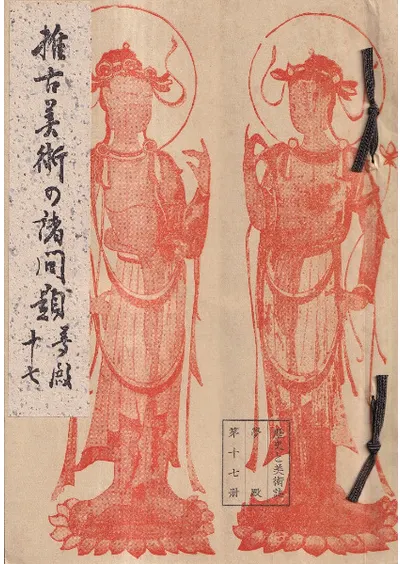 推古美術の諸問題
夢殿
十七
と美術誌
夢殿
第十七冊